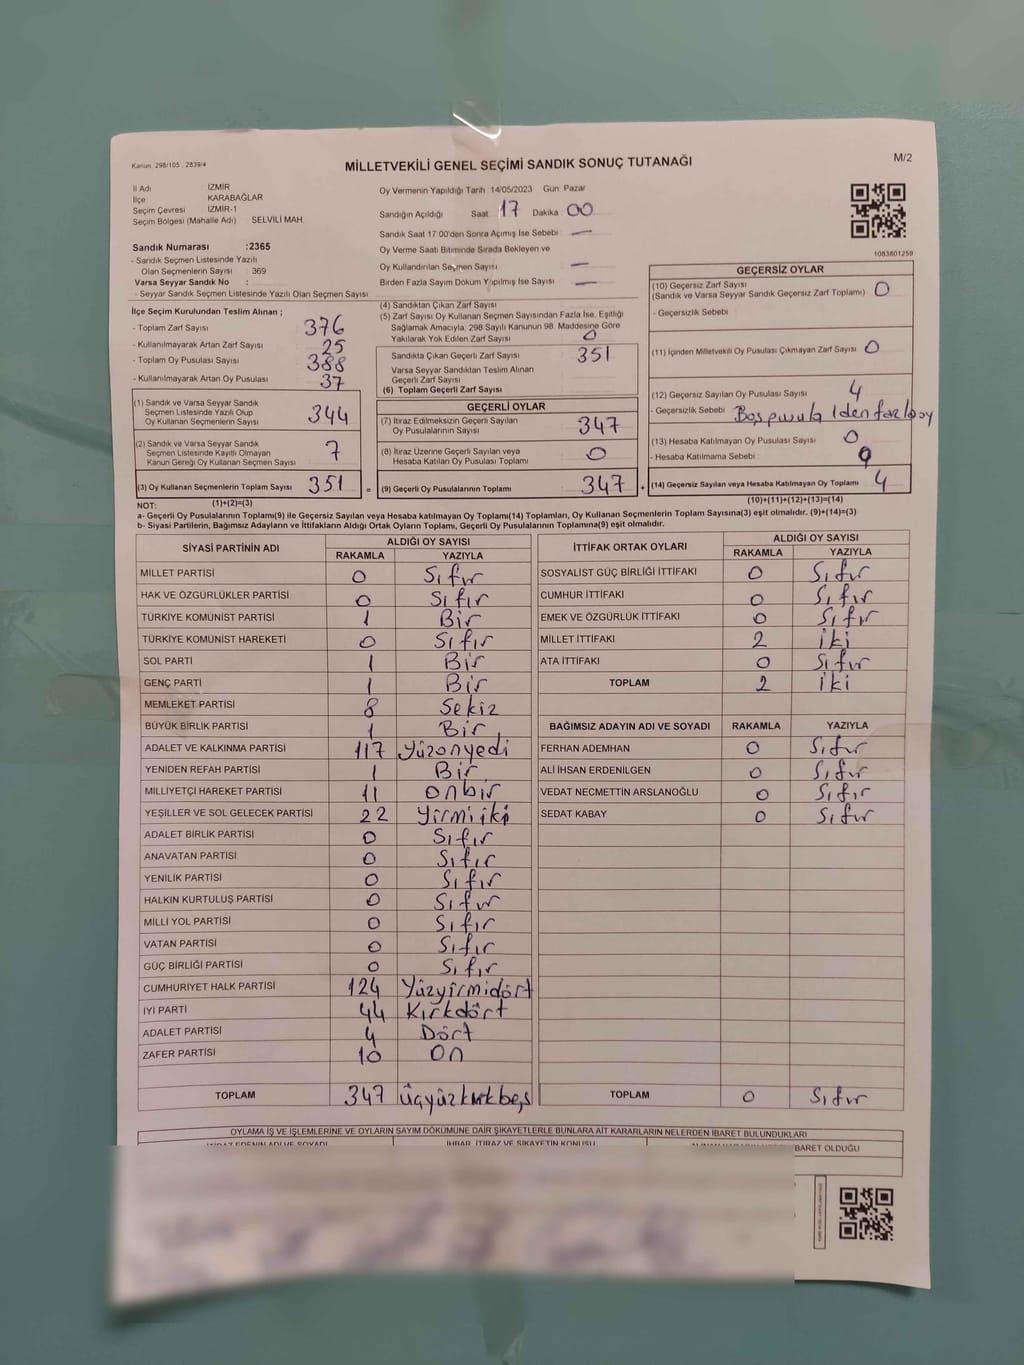 Kanun: 298/105 , 2839/4
MİLLETVEKİLİ GENEL SEÇİMİ SANDIK SONUÇ TUTANAĞI
M/2
İl Adı İZMİR
İlçe KARABAĞLAR
Seçim Çevresi İZMİR-1
Seçim Bölgesi (Mahalle Adı) SELVİLİ MAH.
Oy Vermenin Yapıldığı Tarih 14/05/2023 Gün: Pazar
Sandığın Açıldığı Saat 17 Dakika 00
Sandık Saat 17:00'den Sonra Açımış İse Sebebi —
Oy Verme Saati Bitiminde Sırada Bekleyen ve
Oy Kullandırılan Seçmen Sayısı —
Birden Fazla Sayım Döküm Yapılmış İse Sayısı —
1083801259
Sandık Numarası :2365
- Sandık Seçmen Listesinde Yazılı
Olan Seçmenlerin Sayısı : 369
Varsa Seyyar Sandık No :
- Seyyar Sandık Seçmen Listesinde Yazılı Olan Seçmen Sayısı
İlçe Seçim Kurulundan Teslim Alınan ;
- Toplam Zarf Sayısı 376
- Kullanılmayarak Artan Zarf Sayısı 25
- Toplam Oy Pusulası Sayısı 388
- Kullanılmayarak Artan Oy Pusulası 37
(1) Sandık ve Varsa Seyyar Sandık
Seçmen Listesinde Yazılı Olup
Oy Kullanan Seçmenlerin Sayısı 344
(2) Sandık ve Varsa Seyyar Sandık
Seçmen Listesinde Kayıtlı Olmayan
Kanun Gereği Oy Kullanan Seçmen Sayısı 7
(3) Oy Kullanan Seçmenlerin Toplam Sayısı 351 =
(1)+(2)=(3)
(4) Sandıktan Çıkan Zarf Sayısı
(5) Zarf Sayısı Oy Kullanan Seçmen Sayısından Fazla İse, Eşitliği
Sağlamak Amacıyla, 298 Sayılı Kanunun 98. Maddesine Göre
Yakılarak Yok Edilen Zarf Sayısı 0
Sandıkta Çıkan Geçerli Zarf Sayısı 351
Varsa Seyyar Sandıktan Teslim Alınan
Geçerli Zarf Sayısı
(6) Toplam Geçerli Zarf Sayısı
GEÇERLİ OYLAR
(7) İtiraz Edilmeksizin Geçerli Sayılan
Oy Pusulalarının Sayısı 347
(8) İtiraz Üzerine Geçerli Sayılan veya
Hesaba Katılan Oy Pusulası Toplamı 0
(9) Geçerli Oy Pusulalarının Toplamı 347 +
GEÇERSİZ OYLAR
(10) Geçersiz Zarf Sayısı
(Sandık ve Varsa Seyyar Sandık Geçersiz Zarf Toplamı) 0
- Geçersizlik Sebebi
(11) İçinden Milletvekili Oy Pusulası Çıkmayan Zarf Sayısı 0
(12) Geçersiz Sayılan Oy Pusulası Sayısı 4
- Geçersizlik Sebebi Boş pusula 1den fazla oy
(13) Hesaba Katılmayan Oy Pusulası Sayısı 0
- Hesaba Katılmama Sebebi :
(14) Geçersiz Sayılan veya Hesaba Katılmayan Oy Toplamı 4
(10)+(11)+(12)+(13)=(14)
NOT:
a- Geçerli Oy Pusulalarının Toplamı(9) ile Geçersiz Sayılan veya Hesaba katılmayan Oy Toplamı(14) Toplamları, Oy Kullanan Seçmenlerin Toplam Sayısına(3) eşit olmalıdır. (9)+(14)=(3)
b- Siyasi Partilerin, Bağımsız Adayların ve İttifakların Aldığı Ortak Oyların Toplamı, Geçerli Oy Pusulalarının Toplamına(9) eşit olmalıdır.
SİYASİ PARTİNİN ADI ALDIĞI OY SAYISI
RAKAMLA YAZIYLA
MİLLET PARTİSİ 0 Sıfır
HAK VE ÖZGÜRLÜKLER PARTİSİ 0 Sıfır
TÜRKİYE KOMÜNİST PARTİSİ 1 Bir
TÜRKİYE KOMÜNİST HAREKETİ 0 Sıfır
SOL PARTİ 1 Bir
GENÇ PARTİ 1 Bir
MEMLEKET PARTİSİ 8 Sekiz
BÜYÜK BİRLİK PARTİSİ 1 Bir
ADALET VE KALKINMA PARTİSİ 117 Yüzonyedi
YENİDEN REFAH PARTİSİ 1 Bir
MİLLİYETÇİ HAREKET PARTİSİ 11 onbir
YEŞİLLER VE SOL GELECEK PARTİSİ 22 Yirmiiki
ADALET BİRLİK PARTİSİ 0 Sıfır
ANAVATAN PARTİSİ 0 Sıfır
YENİLİK PARTİSİ 0 Sıfır
HALKIN KURTULUŞ PARTİSİ 0 Sıfır
MİLLİ YOL PARTİSİ 0 Sıfır
VATAN PARTİSİ 0 Sıfır
GÜÇ BİRLİĞİ PARTİSİ 0 Sıfır
CUMHURİYET HALK PARTİSİ 124 Yüzyirmidört
İYİ PARTİ 44 Kırkdört
ADALET PARTİSİ 4 Dört
ZAFER PARTİSİ 10 On
TOPLAM 347 üçyüzkırkbeş
İTTİFAK ORTAK OYLARI ALDIĞI OY SAYISI
RAKAMLA YAZIYLA
SOSYALİST GÜÇ BİRLİĞİ İTTİFAKI 0 Sıfır
CUMHUR İTTİFAKI 0 Sıfır
EMEK VE ÖZGÜRLÜK İTTİFAKI 0 Sıfır
MİLLET İTTİFAKI 2 iki
ATA İTTİFAKI 0 Sıfır
TOPLAM 2 iki
BAĞIMSIZ ADAYIN ADI VE SOYADI RAKAMLA YAZIYLA
FERHAN ADEMHAN 0 Sıfır
ALİ İHSAN ERDENİLGEN 0 Sıfır
VEDAT NECMETTİN ARSLANOĞLU 0 Sıfır
SEDAT KABAY 0 Sıfır
TOPLAM 0 Sıfır
OYLAMA İŞ VE İŞLEMLERİNE VE OYLARIN SAYIM DÖKÜMÜNE DAİR ŞİKAYETLERLE BUNLARA AİT KARARLARIN NELERDEN İBARET BULUNDUKLARI
İHBAR, İTİRAZ VE ŞİKAYETİN KONUSU
İBARET OLDUĞU